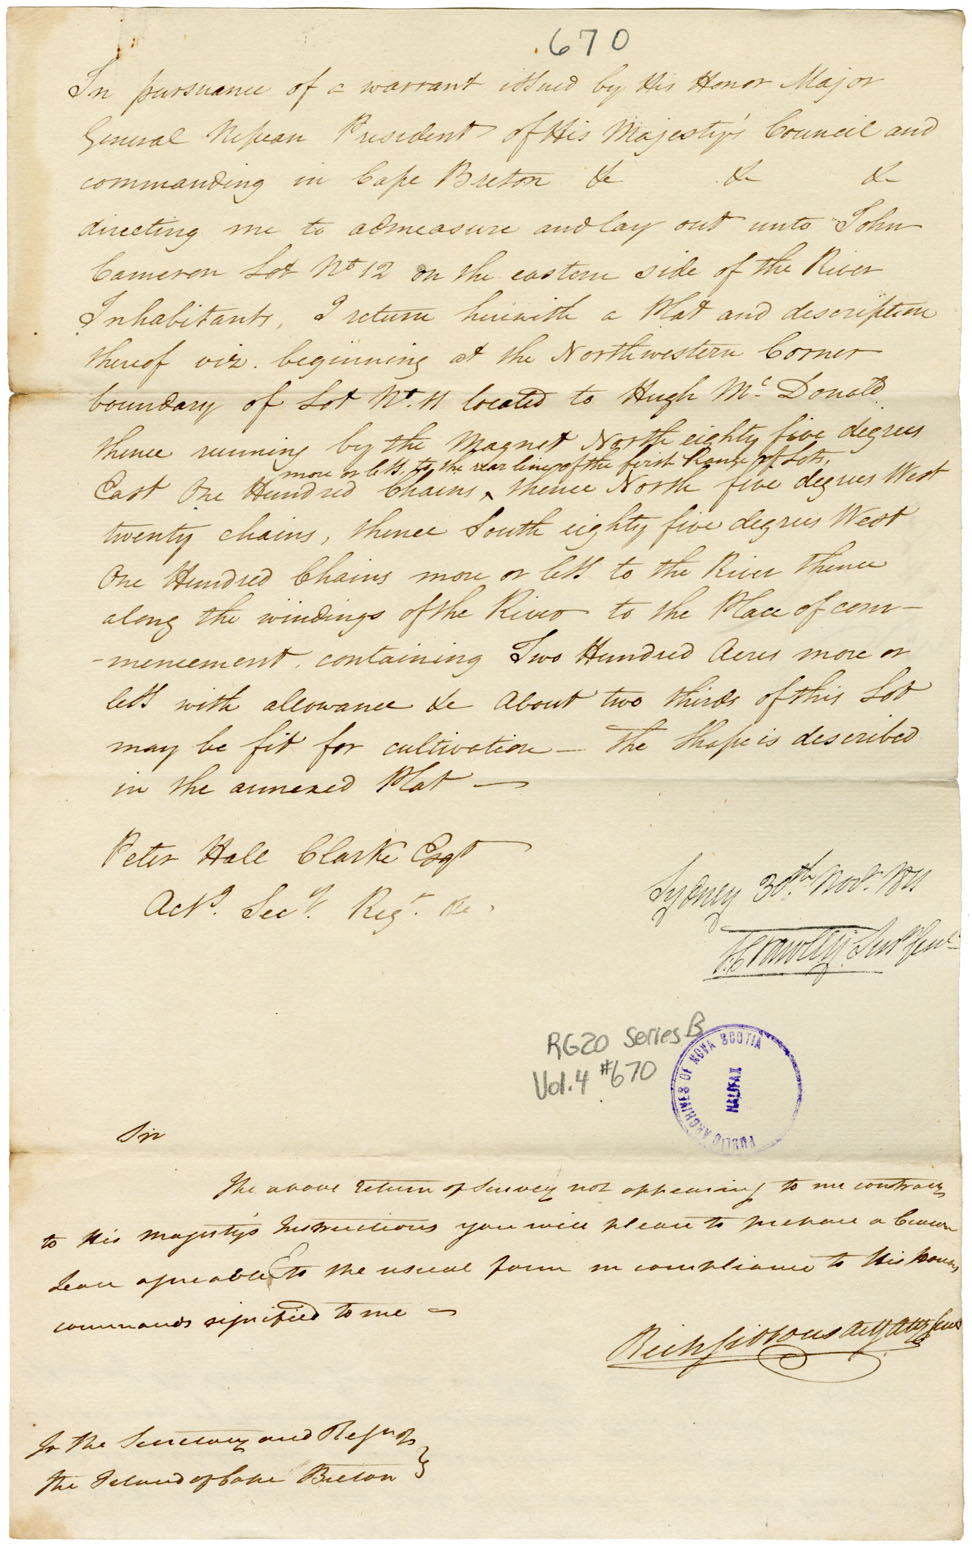 670
In pursuance of a warrant issued by His Honor Major
General Nepean President of His Majesty's Council and
commanding in Cape Breton &c &c &c
directing me to admeasure and lay out unto John
Cameron Lot No 12 on the eastern side of the River
Inhabitants, I return herewith a Plat and description
thereof viz. beginning at the Northwestern Corner
boundary of Lot No. 11 located to Hugh Mc Donald
thence running by the Magnet North eighty five degrees
more or less to the rear line of the first Range of Lots,
East One Hundred Chains ‸ thence North five degrees West
twenty chains, thence South eighty five degrees West
One Hundred Chains more or less to the River thence
along the windings of the River to the Place of com-
-mencement. containing Two Hundred Acres more or
less with allowance &c About two thirds of this Lot
may be fit for cultivation — The Shape is described
in the annexed Plat —
Peter Hall Clarke Esqr
Actg. Secy. Regr. &c.
Sydney 30th Novr. 1811
H Crawley Surr Genl
RG20 Series B
Vol. 4 #670
PUBLIC ARCHIVES OF NOVA SCOTIA
HALIFAX
Sir
The above return of Survey not appearing to me contrary
to His Majesty's Instructions you will please to prepare a Crown
Lease agreable to the usual form in compliance to His Honors
commands signified to me —
Rich Gibbons Actg Atty Genl
To the Secretary and Regr of
the Island of Cape Breton